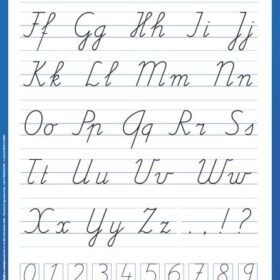 Ff Gg Hh Ii Jj
Kk Ll Mm Nn
Oo Pp Qq Rr Ss
Tt Uu Vv Ww
Xx Yy Zz . , ! ?
0 1 2 3 4 5 6 7 8 9